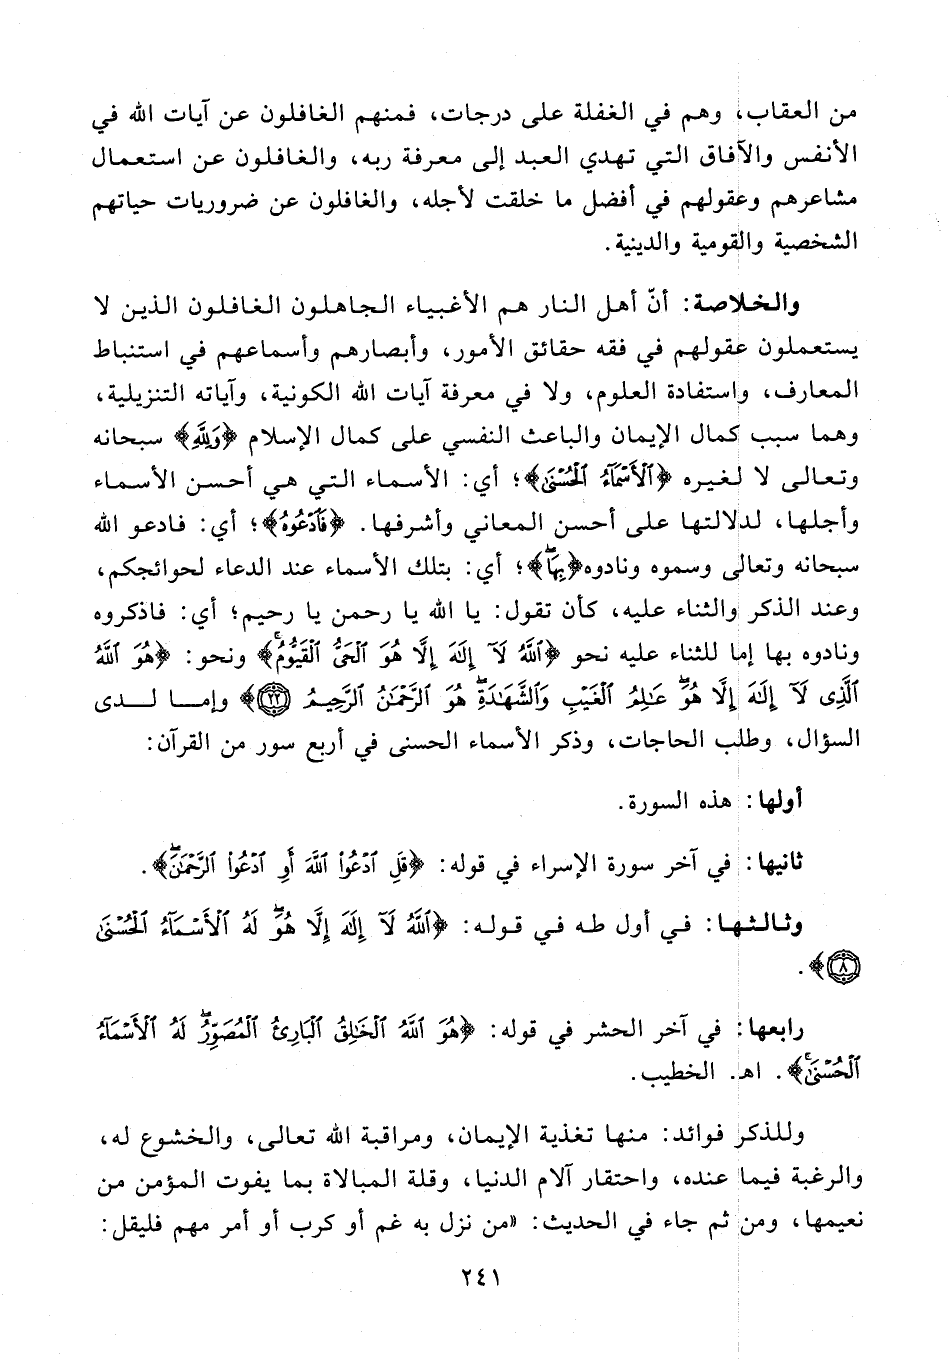 من العقاب، وهم في الغفلة على درجات، فمنهم الغافلون عن آيات الله في
الأنفس والآفاق التي تهدي العبد إلى معرفة ربه، والغافلون عن استعمال
مشاعرهم وعقولهم في أفضل ما خلقت لأجله، والغافلون عن ضروريات حياتهم
الشخصية والقومية والدينية.
والخلاصة: أنّ أهل النار هم الأغبياء الجاهلون الغافلون الذين لا
يستعملون عقولهم في فقه حقائق الأمور، وأبصارهم وأسماعهم في استنباط
المعارف، واستفادة العلوم، ولا في معرفة آيات الله الكونية، وآياته التنزيلية،
وهما سبب كمال الإيمان والباعث النفسي على كمال الإسلام ﴿وَلِلَّهِ﴾ سبحانه
وتعالى لا لغيره ﴿ٱلْأَسْمَآءُ ٱلْحُسْنَىٰ﴾؛ أي: الأسماء التي هي أحسن الأسماء
وأجلها، لدلالتها على أحسن المعاني وأشرفها. ﴿فَٱدْعُوهُ﴾؛ أي: فادعو الله
سبحانه وتعالى وسموه ونادوه﴿بِهَاۖ﴾؛ أي: بتلك الأسماء عند الدعاء لحوائجكم،
وعند الذكر والثناء عليه، كأن تقول: يا الله يا رحمن يا رحيم؛ أي: فاذكروه
ونادوه بها إما للثناء عليه نحو ﴿ٱللَّهُ لَآ إِلَٰهَ إِلَّا هُوَ ٱلْحَىُّ ٱلْقَيُّومُۚ﴾ ونحو: ﴿هُوَ ٱللَّهُ
ٱلَّذِى لَآ إِلَٰهَ إِلَّا هُوَۖ عَٰلِمُ ٱلْغَيْبِ وَٱلشَّهَٰدَةِۖ هُوَ ٱلرَّحْمَٰنُ ٱلرَّحِيمُ ٢٢﴾ وإما لدى
السؤال، وطلب الحاجات، وذكر الأسماء الحسنى في أربع سور من القرآن:
أولها: هذه السورة.
ثانيها: في آخر سورة الإسراء في قوله: ﴿قُلِ ٱدْعُوا۟ ٱللَّهَ أَوِ ٱدْعُوا۟ ٱلرَّحْمَٰنَۖ﴾.
وثالثها: في أول طه في قوله: ﴿ٱللَّهُ لَآ إِلَٰهَ إِلَّا هُوَۖ لَهُ ٱلْأَسْمَآءُ ٱلْحُسْنَىٰ
٨﴾.
رابعها: في آخر الحشر في قوله: ﴿هُوَ ٱللَّهُ ٱلْخَٰلِقُ ٱلْبَارِئُ ٱلْمُصَوِّرُۖ لَهُ ٱلْأَسْمَآءُ
ٱلْحُسْنَىٰۚ﴾. اهـ. الخطيب.
وللذكر فوائد: منها تغذية الإيمان، ومراقبة الله تعالى، والخشوع له،
والرغبة فيما عنده، واحتقار آلام الدنيا، وقلة المبالاة بما يفوت المؤمن من
نعيمها، ومن ثم جاء في الحديث: «من نزل به غم أو كرب أو أمر مهم فليقل:
٢٤١